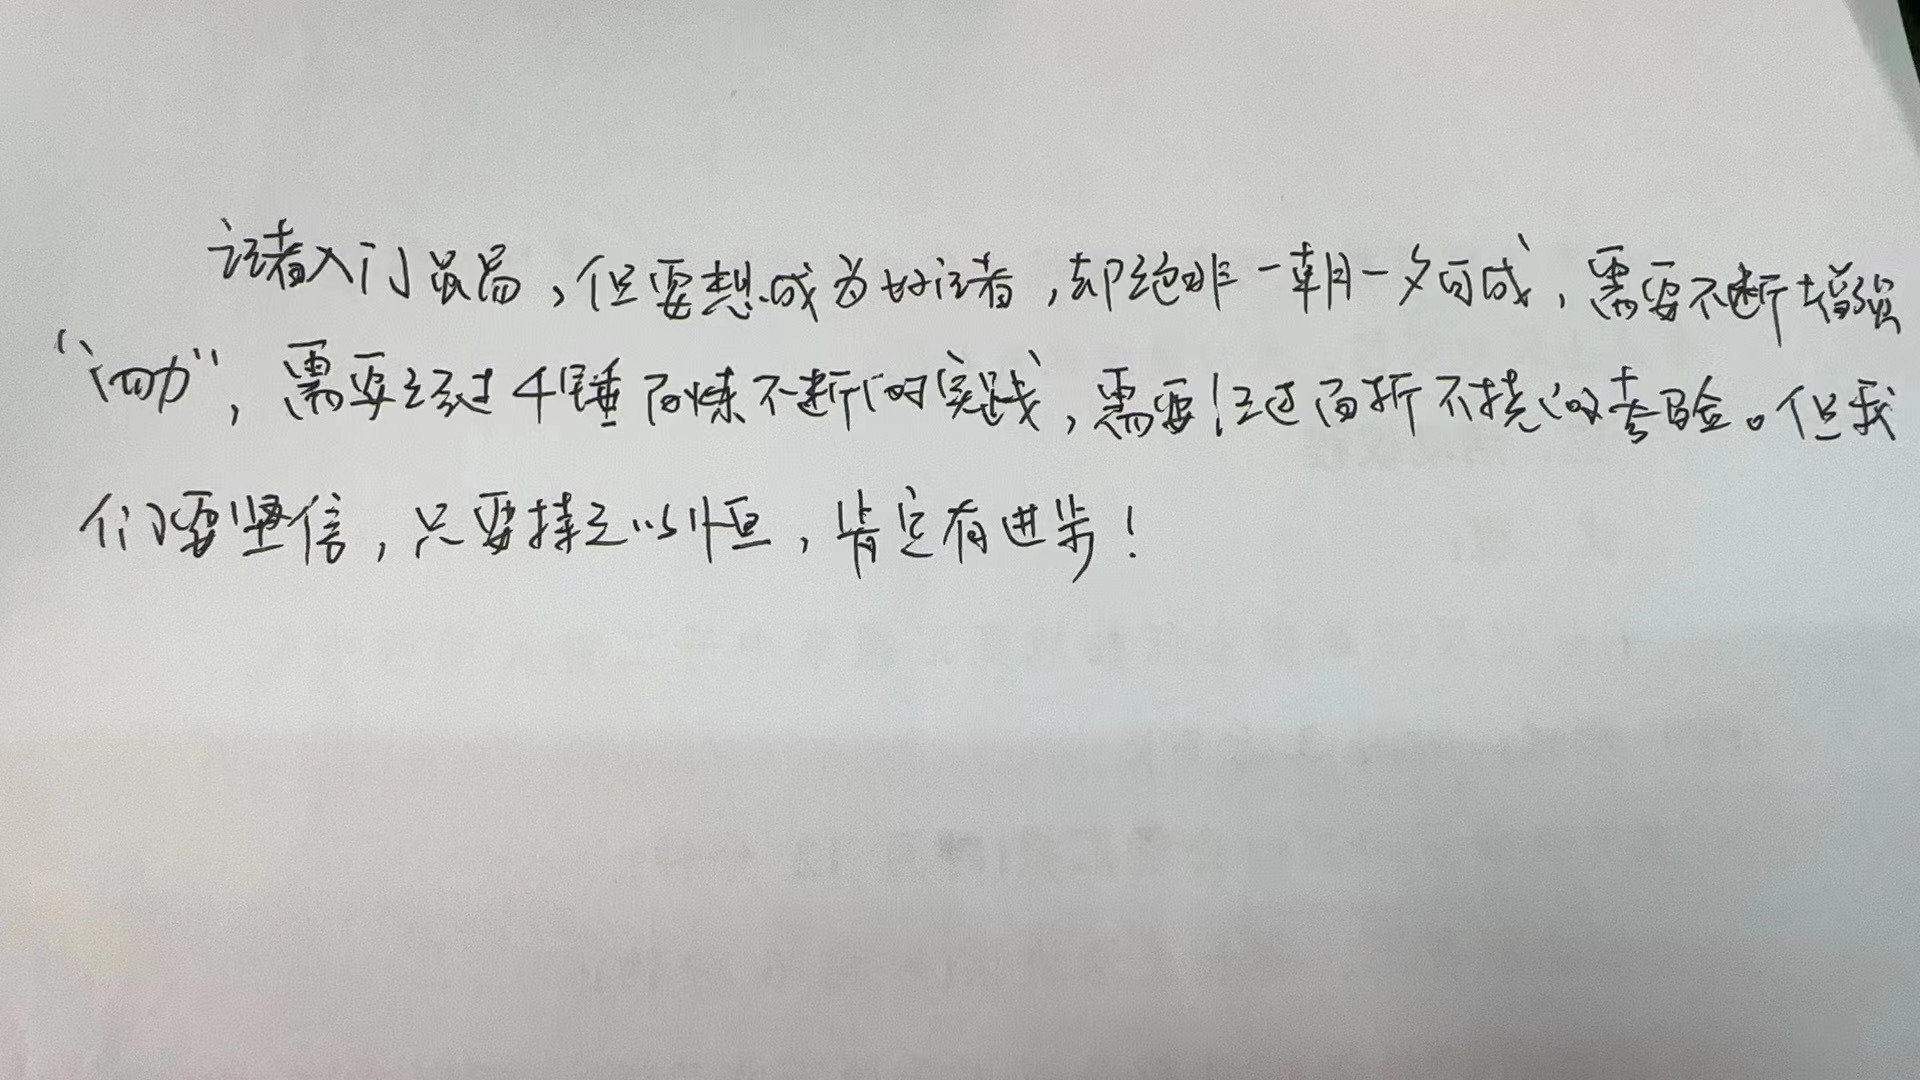 记者入门虽易，但要想成为好记者，却绝非一朝一夕可成，需要不断增强
“四力”，需要经过千锤百炼不断的实践，需要经过百折不挠的考验。但我
们要坚信，只要持之以恒，肯定有进步！